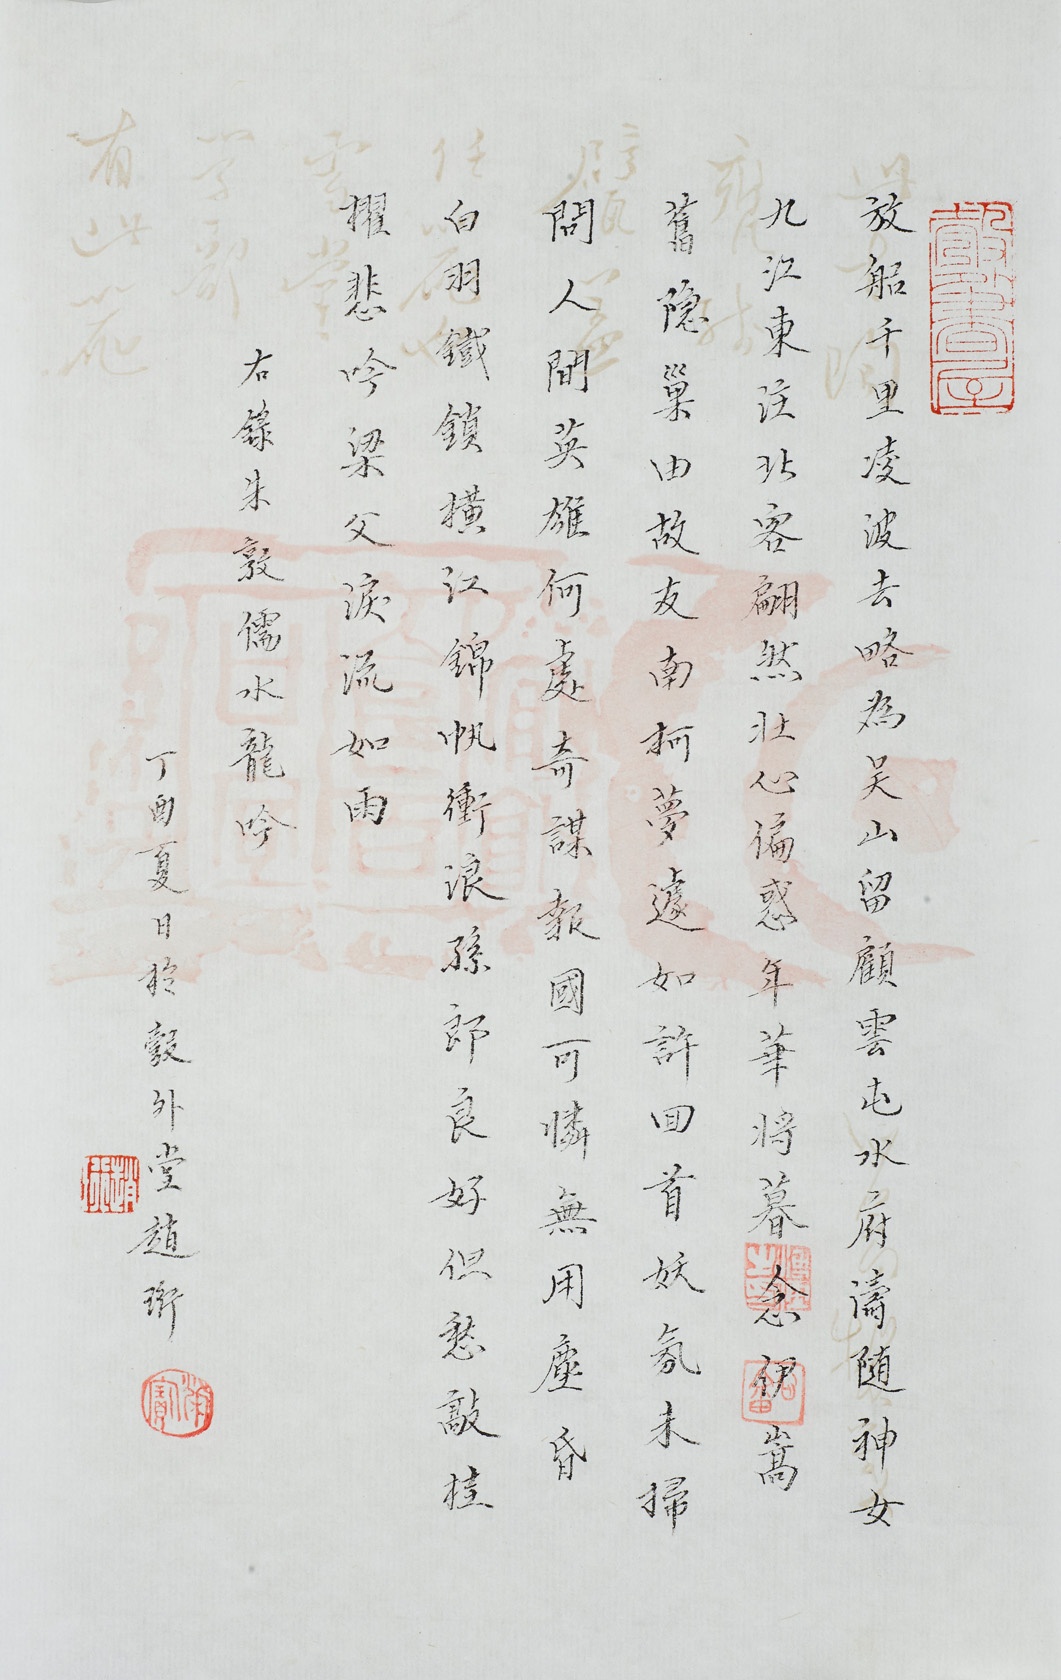 放船千里凌波去略為吳山留顧雲屯水府濤隨神女
九江東注北客翩然壯心偏感年華將暮念伊嵩
舊隱巢由故友南柯夢遽如許回首妖氛未掃
問人間英雄何處奇謀報國可憐無用塵昏
白羽鐵鎖橫江錦帆衝浪孫郎良好但愁敲桂
櫂悲吟梁父淚流如雨
右錄朱敦儒水龍吟
丁酉夏日於彀外堂趙珩